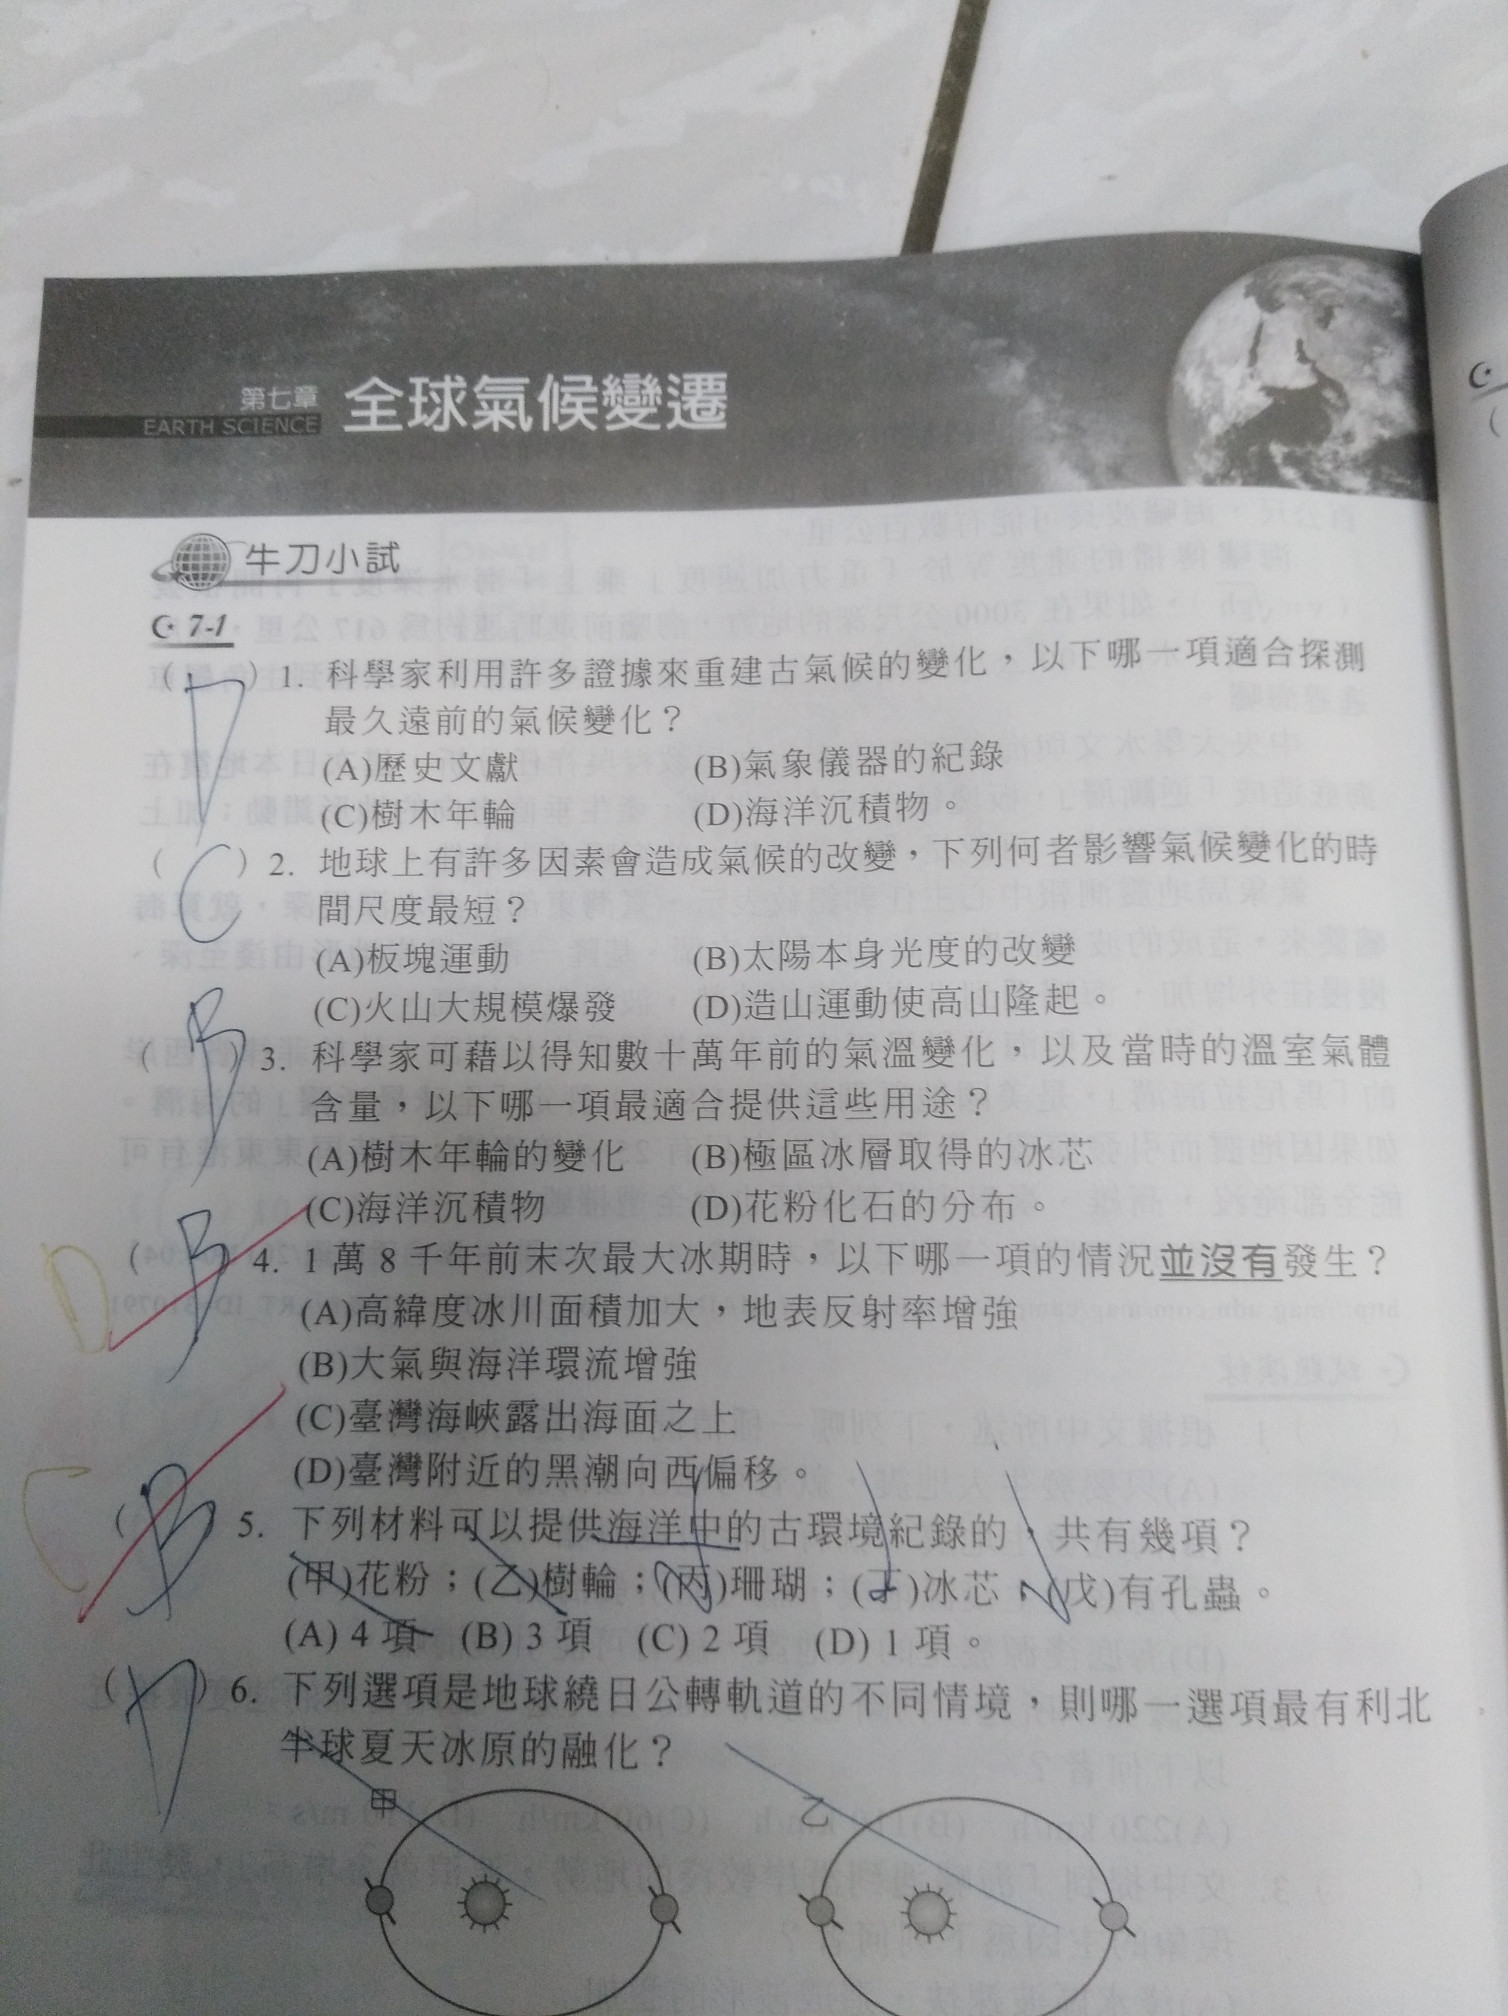 第七章 全球氣候變遷
EARTH SCIENCE
牛刀小試
7-1
( D ) 1. 科學家利用許多證據來重建古氣候的變化，以下哪一項適合探測
最久遠前的氣候變化？
(A)歷史文獻 (B)氣象儀器的紀錄
(C)樹木年輪 (D)海洋沉積物。
( C ) 2. 地球上有許多因素會造成氣候的改變，下列何者影響氣候變化的時
間尺度最短？
(A)板塊運動 (B)太陽本身光度的改變
(C)火山大規模爆發 (D)造山運動使高山隆起。
( B ) 3. 科學家可藉以得知數十萬年前的氣溫變化，以及當時的溫室氣體
含量，以下哪一項最適合提供這些用途？
(A)樹木年輪的變化 (B)極區冰層取得的冰芯
(C)海洋沉積物 (D)花粉化石的分布。
D ( B ) 4. 1 萬 8 千年前末次最大冰期時，以下哪一項的情況並沒有發生？
(A)高緯度冰川面積加大，地表反射率增強
(B)大氣與海洋環流增強
(C)臺灣海峽露出海面之上
(D)臺灣附近的黑潮向西偏移。
C ( B ) 5. 下列材料可以提供海洋中的古環境紀錄的，共有幾項？
(甲)花粉；(乙)樹輪；(丙)珊瑚；(丁)冰芯；(戊)有孔蟲。
(A) 4 項 (B) 3 項 (C) 2 項 (D) 1 項。
( D ) 6. 下列選項是地球繞日公轉軌道的不同情境，則哪一選項最有利北
半球夏天冰原的融化？
甲 乙